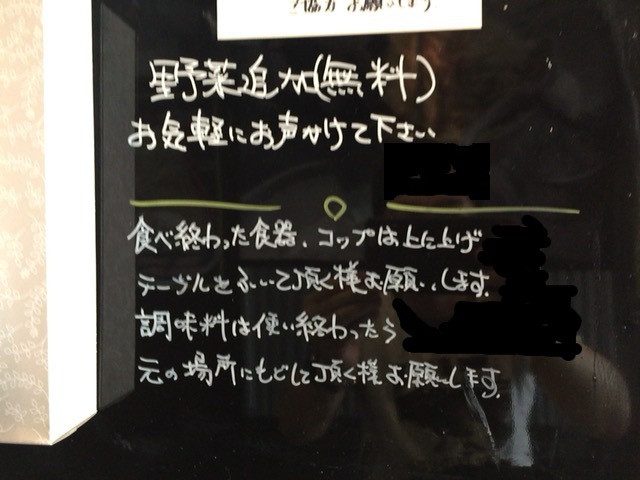 協力お願いします
野菜追加(無料)
お気軽にお声かけて下さい
食べ終わった食器、コップは上に上げ
テーブルをふいて頂く様お願いします。
調味料は使い終わったら
元の場所にもどして頂く様お願いします。